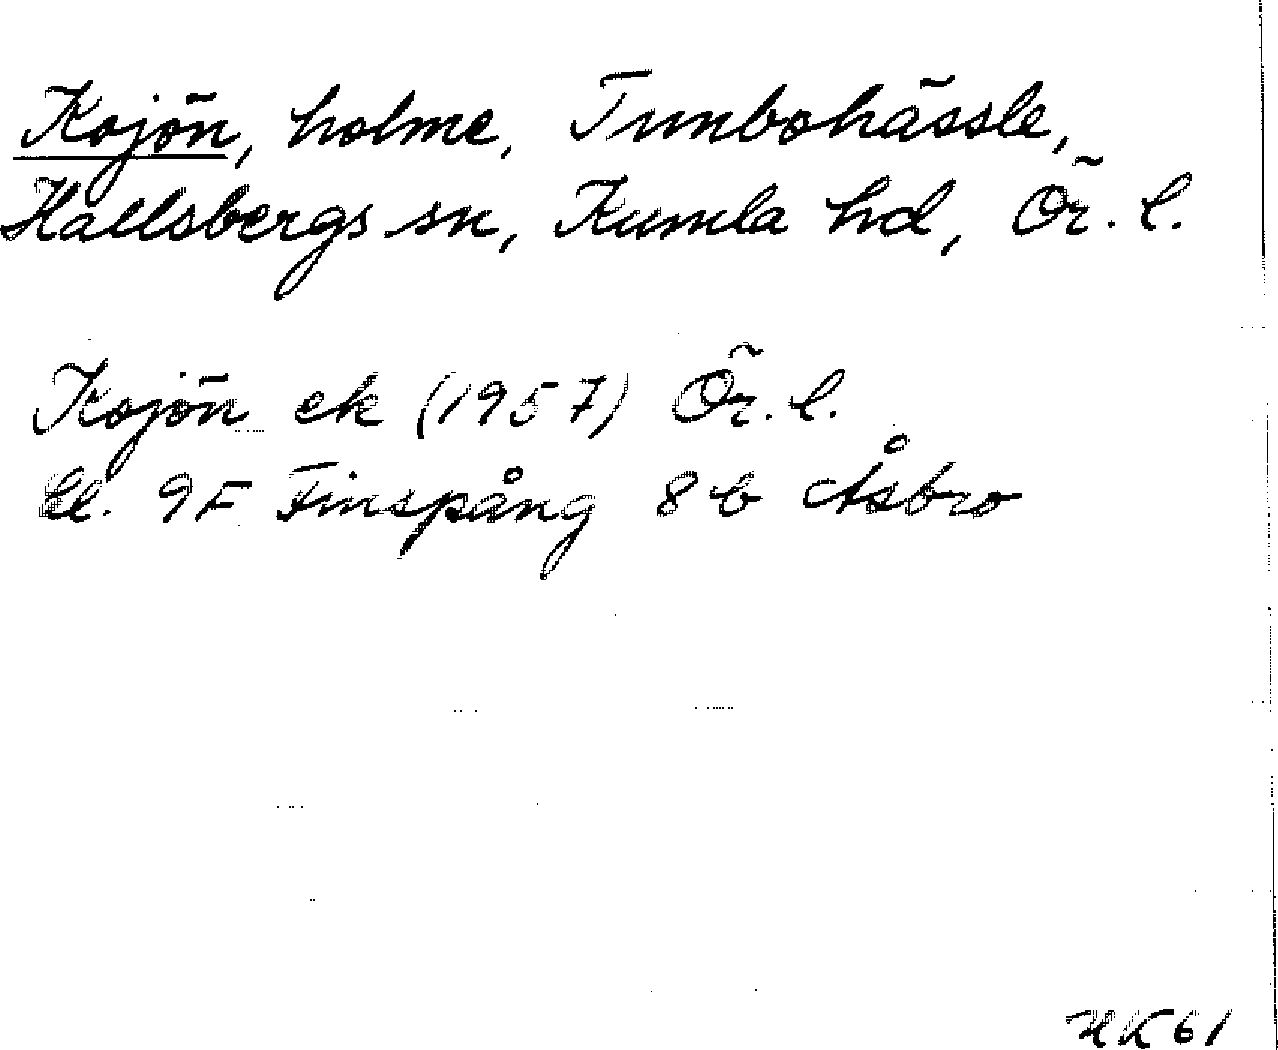 Kojön, holme, Tunbohässle,
Hallsbergs sn, Kumla hd, Ör. l.
Kojön ek (1957) Ör. l.
Bl. 9F Finspång 8b Åsbro
HK 61